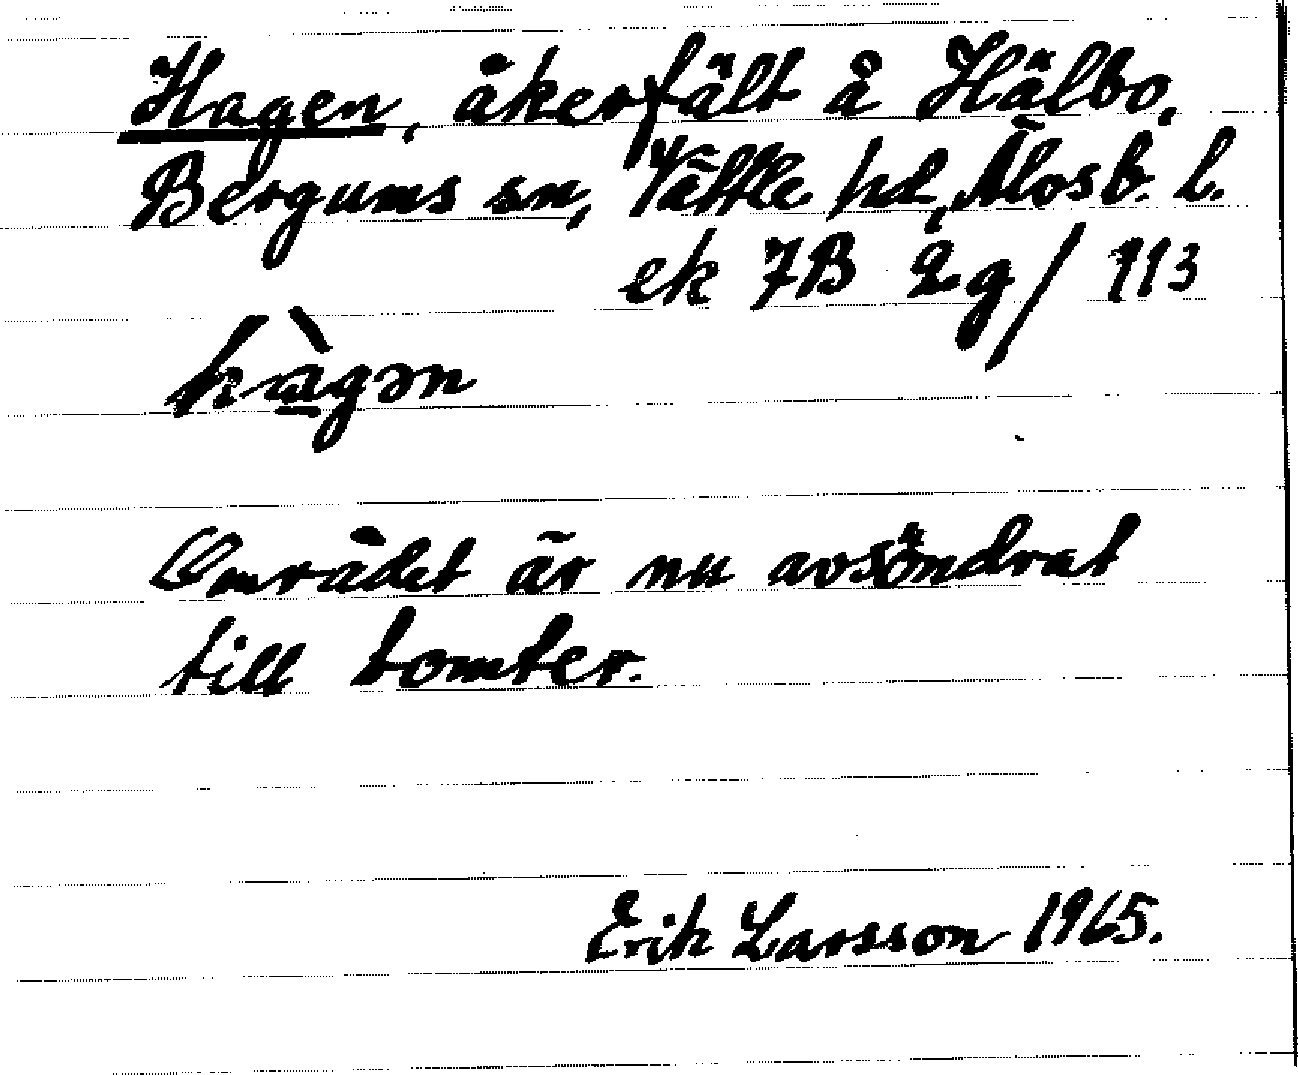 Hagen, åkerfält å Hälbo,
Bergums sn, Vättle hd, Älvsb. l.
ek 7B 2g/113
hàgən
Området är nu avsöndrat
till tomter.
Erik Larsson 1965.